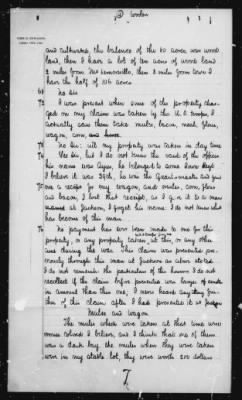 and cultivated the balance of the 80 acres was wood
land, then I have a lot of ten acres of wood land
2 miles from McLemoresville, then 1 mile from town I
has the half of 106 acres
no sir
I was present when some of the property charged
on my claim was taken by the U.S. troops, I
actually saw them take mules, bacon, meal, flour,
wagon, corn, and
no sir, all my property was taken in day time
Yes sir, but I do not know the rank of the officer
his name was Ayer, he belonged to some
I believe it was 39th, he was the Quartermaster and gave
me a receipt for my wagon, and mules, corn, flour
and bacon, I lost that receipt, as I gave it to a man
at Jackson, I forget his name. I do not know what
has become of this man.
no payment has ever been made to me for this
property, or any property taken, at this, or any other
time during the war. This claim was presented for-
merly through this man at Jackson as above stated
I do not remember the particulars of this however I do not
recollect if the claim before presented was larger or smaller
in amount than this one, I never heard anything fur-
ther of this claim after I had presented it at Jackson
Mules and wagon
The mules which were taken at that time were
mouse colored I believe, and I think that one of them
was a dark bay, the mules when they were taken
were in my stable lot, they were worth 200 dollars
7